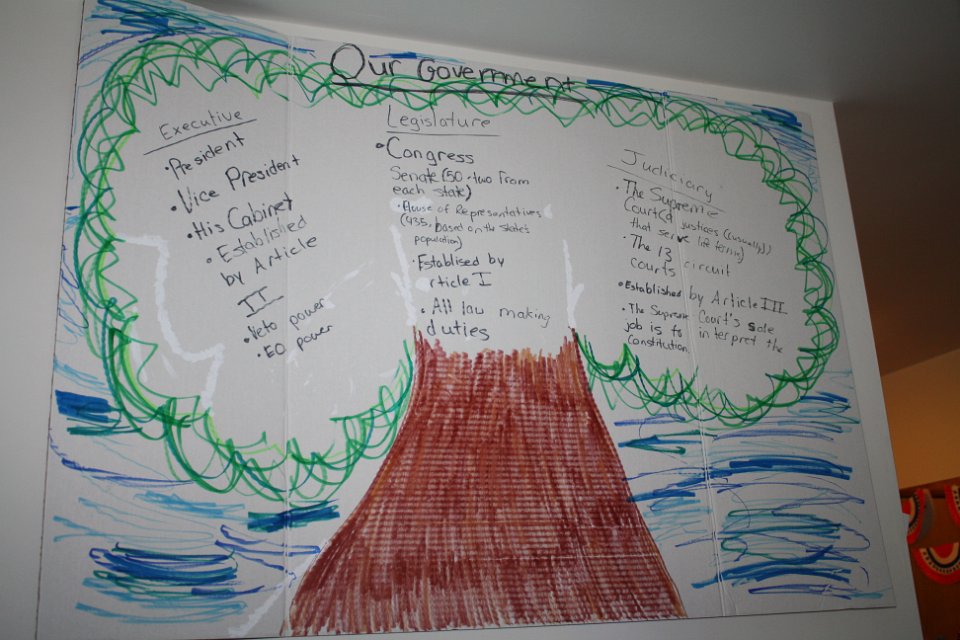 Our Government
Executive
• President
• Vice President
• His Cabinet
• Established
by Article
II
• Veto power
• EO power
Legislature
• Congress
Senate (50 • two from
each state)
• House of Representatives
(435, based on the state's
population)
• Establised by
rticle I
• All law making
duties
Judiciary
• The Supreme
Court (9 justices (usually)
that serve life terms)
• The 13 circuit
courts
• Established by Article III
• The Supreme Court's sole
job is to interpret the
Constitution